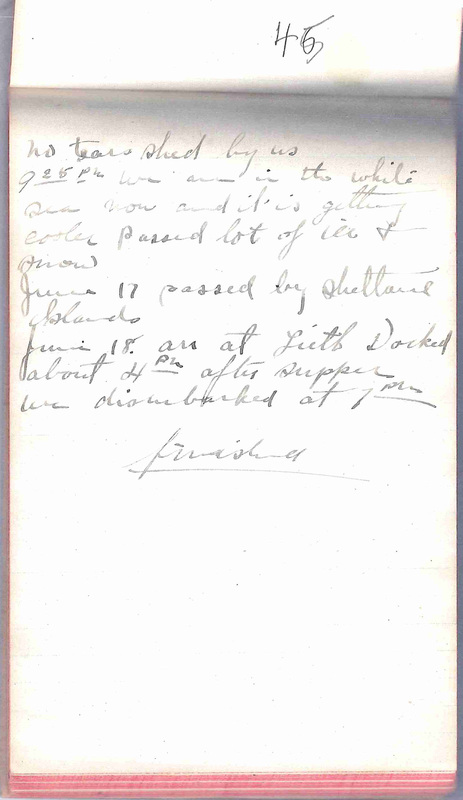 45
no tears shed by us
9 25 PM we are in the white
sea now and it is getting
cooler passed lot of ice &
snow
June 17 passed by shetland
Islands
June 18. arr at Lieth Docked
about 4 PM after supper
we disembarked at 7 PM
finished